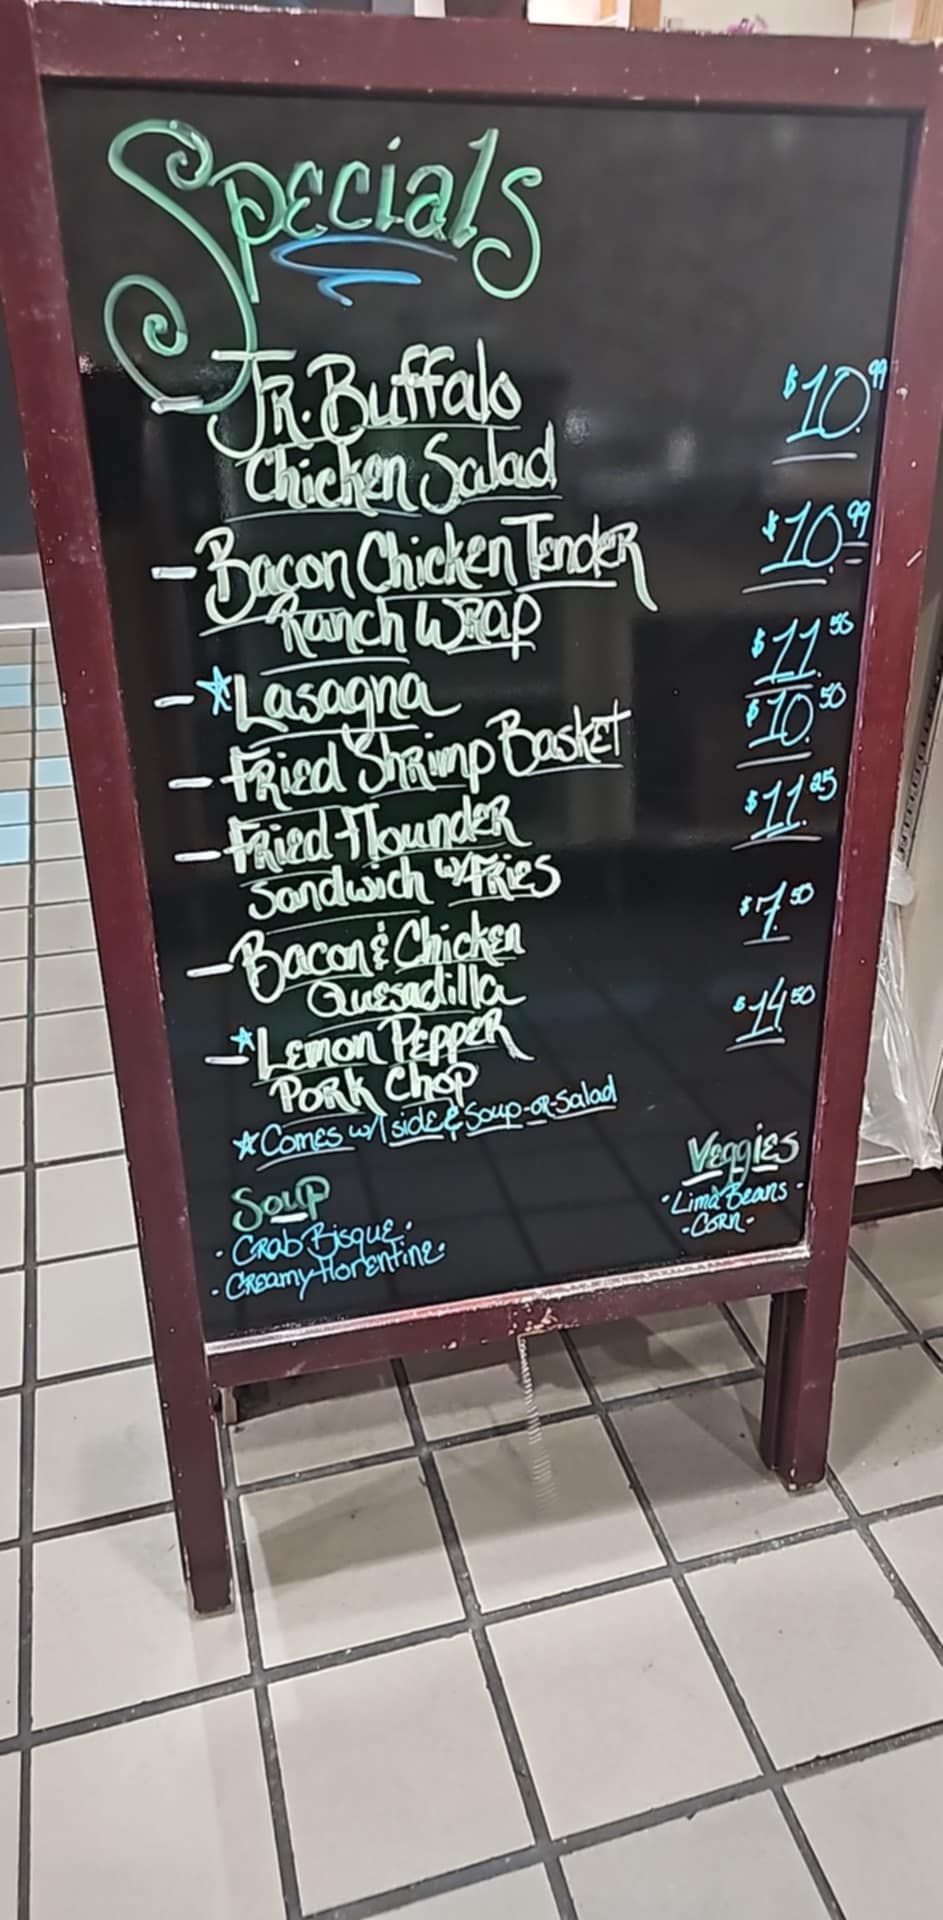 Specials
- JR. Buffalo $10.99
Chicken Salad
- Bacon Chicken Tender $10.99
Ranch Wrap
- ☆Lasagna $11.55
- Fried Shrimp Basket $10.50
- Fried Flounder $11.25
Sandwich w/Fries
- Bacon & Chicken $7.50
Quesadilla
- ☆Lemon Pepper $14.50
Pork Chop
☆Comes w/1 side & Soup-or-Salad
Soup
· Crab Bisque ·
· Creamy Florentine ·
Veggies
· Lima Beans ·
- Corn -